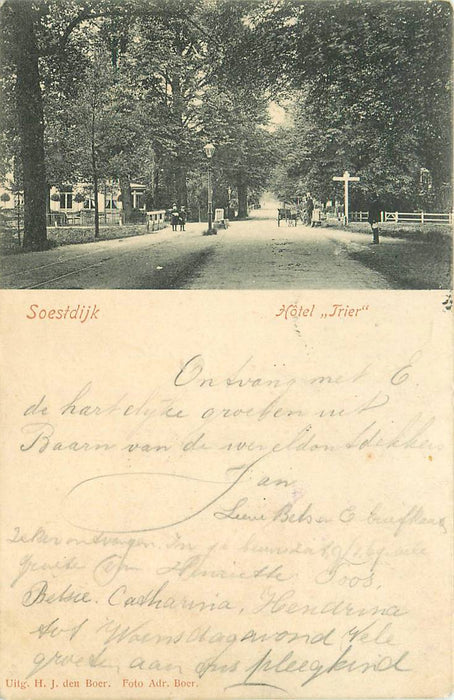 Soestdijk Hôtel „Trier"
Ontvang met E.
de hartelyke groeten uit
Baarn van de wereldontdekkers
Jan
Lieve Bets en E. briefkaart
zeker ontvangen. In
groete Henriette Toos,
Betsie. Catharina, Hendrina
tot Woensdagavond Vele
groeten aan ons pleegkind
Uitg. H. J. den Boer. Foto Adr. Boer.